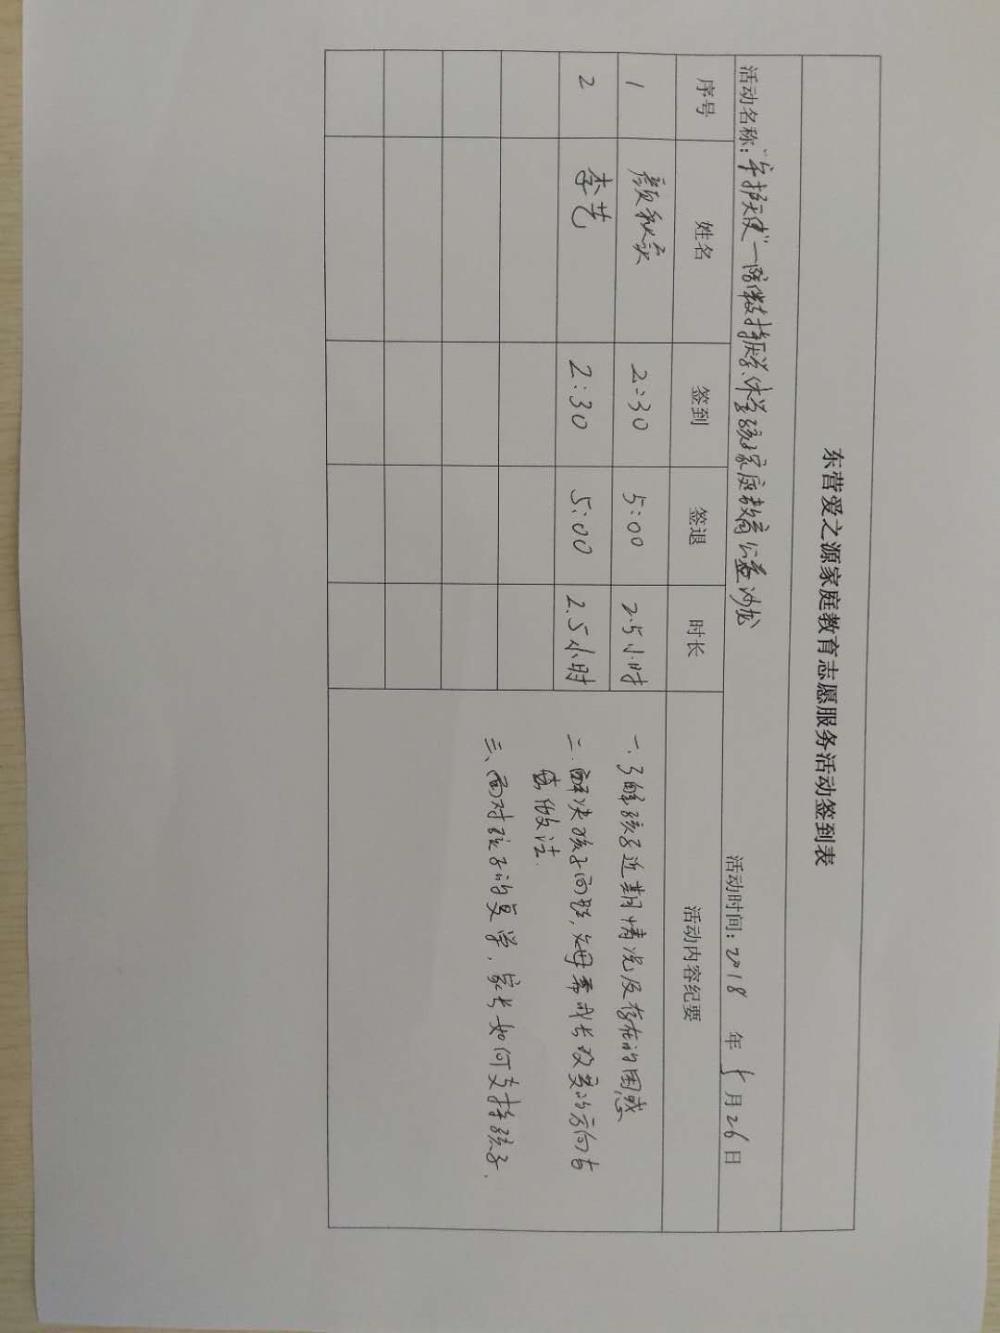 东营爱之源家庭教育志愿服务活动签到表
活动名称：“守护天使”一陪伴支持厌学、休学孩子家庭教育公益沙龙 活动时间：2018 年 5 月 26 日
序号 姓名 签到 签退 时长 活动内容纪要
1 颜秋 2:30 5:00 2.5小时
2 李艺 2:30 5:00 2.5小时
一.了解孩子近期情况及存在的困惑
二.解决孩子问题，父母需成长改变的方向与
做法.
三、面对孩子的复学，家长如何支持孩子.